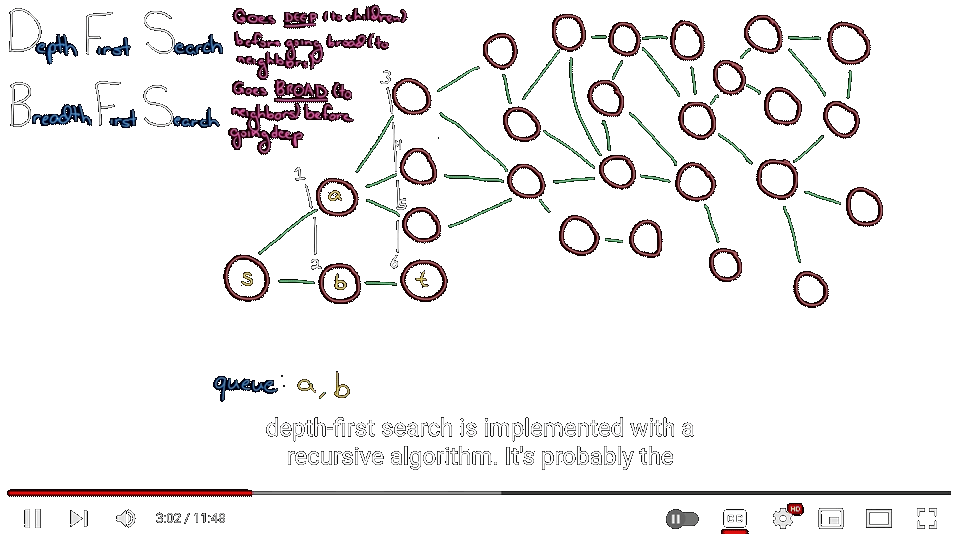 Depth First Search
Goes DEEP (to children)
before going broad (to
neighbors)
Breadth First Search
Goes BROAD (to
neighbors) before
going deep
3
4
1
a
5
2
6
s
b
t
queue: a, b
depth-first search is implemented with a
recursive algorithm. It's probably the
3:02 / 11:48
CC
HD